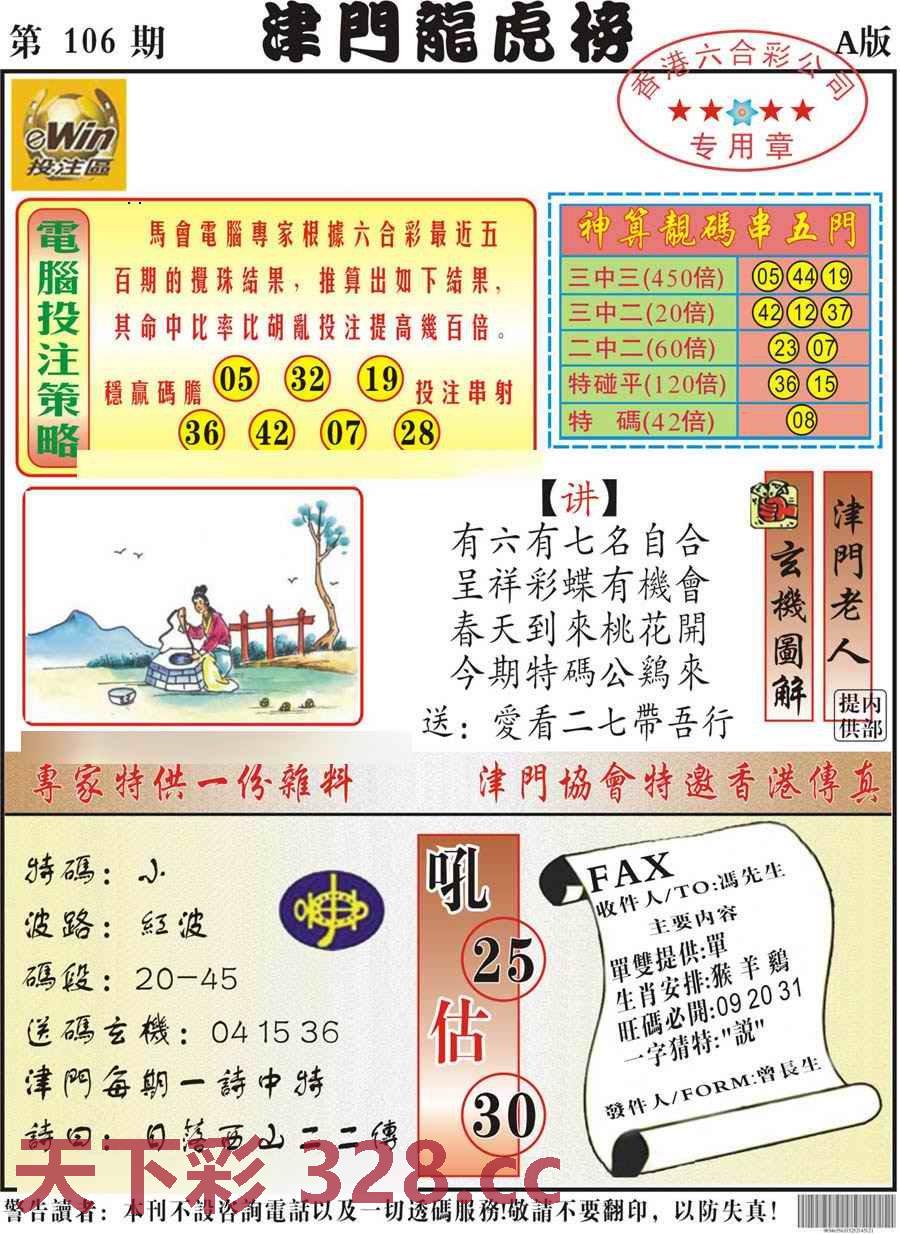 第 106 期
津門龍虎榜
A版
香港六合彩公司
专用章
eWin
投注區
電腦投注策略
馬會電腦專家根據六合彩最近五
百期的攪珠結果，推算出如下結果，
其命中比率比胡亂投注提高幾百倍。
穩贏碼膽 05 32 19 投注串射
36 42 07 28
神算靚碼串五門
三中三(450倍) 05 44 19
三中二(20倍) 42 12 37
二中二(60倍) 23 07
特碰平(120倍) 36 15
特 碼(42倍) 08
【讲】
有六有七名自合
呈祥彩蝶有機會
春天到來桃花開
今期特碼公鷄來
送：愛看二七帶吾行
玄機圖解
津門老人
内部提供
專家特供一份雜料
津門協會特邀香港傳真
特碼：小
波路：紅波
碼段：20－45
送碼玄機：04 15 36
津門每期一詩中特
詩曰：日落西山二二傳
吼
25
估
30
FAX
收件人/TO:馮先生
主要内容
單雙提供:單
生肖安排:猴 羊 鷄
旺碼必開:09 20 31
一字猜特:"説"
發件人/FORM:曾長生
天下彩 328.cc
警告讀者：本刊不設咨詢電話以及一切透碼服務!敬請不要翻印，以防失真！